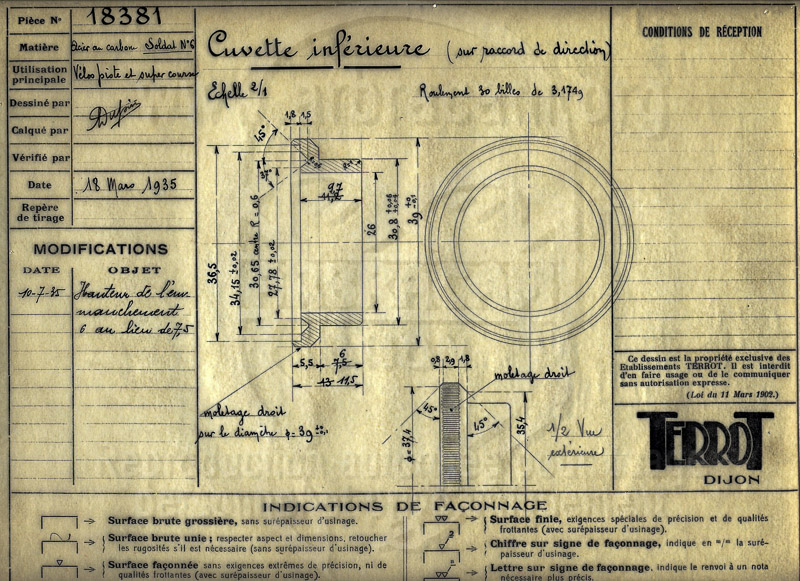 Pièce N° 18381
Matière Acier au carbone Soldat N°6
Utilisation principale Vélos piste et super course
Dessiné par
Calqué par
Vérifié par
Date 18 Mars 1935
Repère de tirage
MODIFICATIONS
DATE OBJET
10-7-35 Hauteur de l'em
manchement
6 au lieu de 7,5
Cuvette inférieure (sur raccord de direction)
Echelle 2/1 Roulement 30 billes de 3,1749
1,8 1,5
45°
36,5
34,15 ±0,02
30,65 entre R = 0,6
27,78 ±0,02
9,7
11,2
26
30,8
39
6
5,5 7,5
13 11,5
moletage droit
sur le diamètre φ = 39
0,8 29 1,8
moletage droit
45°
45°
φ = 37,4
35,4
1/2 Vue
extérieure
CONDITIONS DE RÉCEPTION
Ce dessin est la propriété exclusive des
Etablissements TERROT. Il est interdit
d'en faire usage ou de le communiquer
sans autorisation expresse.
(Loi du 11 Mars 1902.)
TERROT
DIJON
INDICATIONS DE FAÇONNAGE
Surface brute grossière, sans surépaisseur d'usinage.
Surface brute unie; respecter aspect et dimensions, retoucher
les rugosités s'il est nécessaire (sans surépaisseur d'usinage).
Surface façonnée sans exigences extrêmes de précision, ni de
qualités frottantes (avec surépaisseur d'usinage).
Surface finie, exigences spéciales de précision et de qualités
frottantes (avec surépaisseur d'usinage).
Chiffre sur signe de façonnage, indique en m/m la suré-
paisseur d'usinage.
Lettre sur signe de façonnage, indique le renvoi à un nota
nécessaire plus précis.